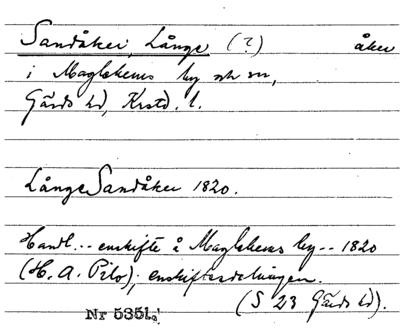 Sandåker, Långe (?) åker
i Maglehems by och sn,
Gärds hd, Krstd. l.
Långe Sandåker 1820.
Handl. .. enskifte å Maglehems by .. 1820
(H. A. Pilo); enskiftesdelningen.
(S 23 Gärds hd).
Nr 5351